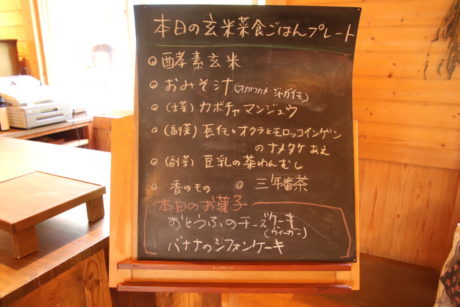 本日の玄米菜食ごはんプレート
◎酵素玄米
◎おみそ汁(オカワカメ ジャガイモ)
◎(主菜) カボチャマンジュウ
◎(副菜) 長イモとオクラとモロッコインゲン
のナメタケあえ
◎(副菜) 豆乳の茶わんむし
◎香のもの ◎三年番茶
本日のお菓子
おとうふのチーズケーキ
バナナのシフォンケーキ